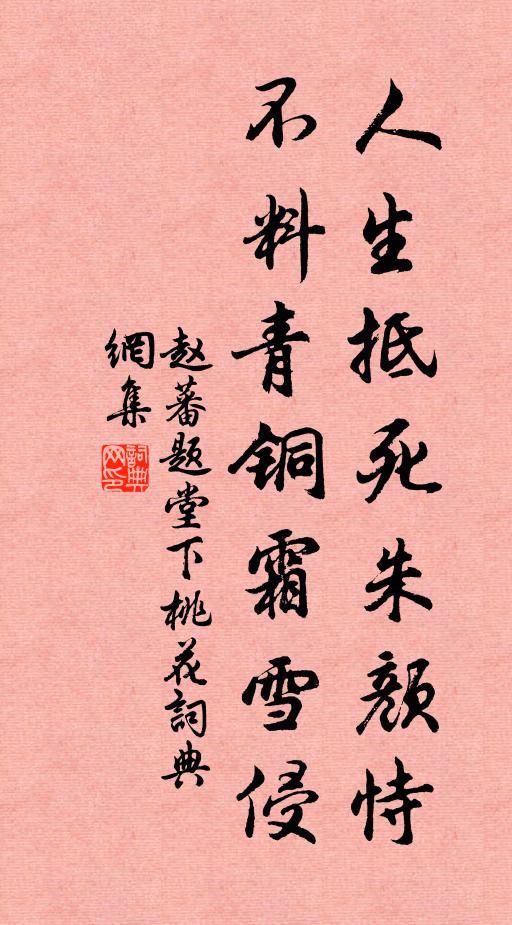 人生抵死朱颜恃
不料青铜霜雪侵
赵蕃题堂下桃花詞典
網集
詞典
网印